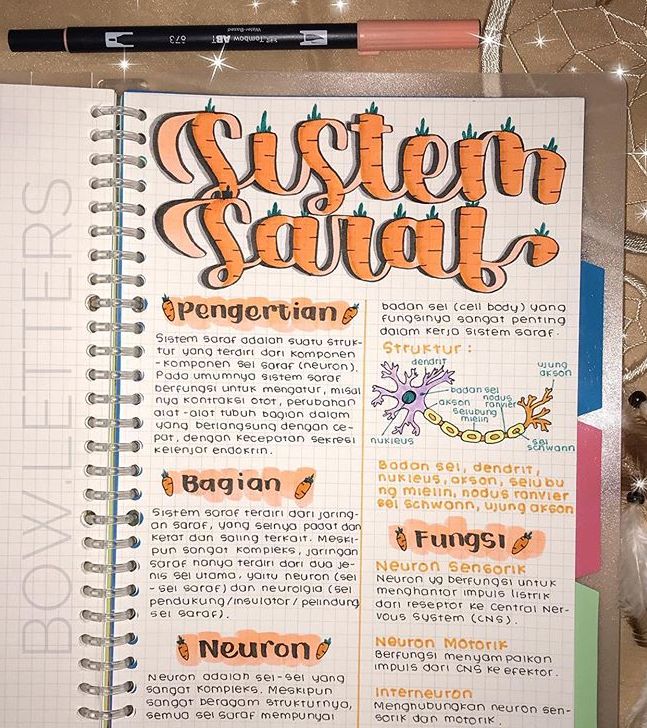 673 Tombow ABT
Water-Based
BOW.LETTERS
Sistem
Saraf
Pengertian
Sistem saraf adalah suatu struk-
tur yang terdiri dari komponen
-komponen sel saraf (neuron).
Pada umumnya sistem saraf
berfungsi untuk mengatur, misal
nya kontraksi otot, perubahan
alat-alat tubuh bagian dalam
yang berlangsung dengan ce-
pat, dengan kecepatan sekresi
kelenjar endokrin.
Bagian
Sistem saraf terdiri dari jaring-
an saraf, yang selnya padat dan
ketat dan saling terkait. Meski-
pun sangat kompleks, jaringan
saraf hanya terdiri dari dua je-
nis sel utama, yaitu neuron (sel
-sel saraf) dan neurolgia (sel
pendukung/insulator/pelindung
sel saraf).
Neuron
Neuron adalah sel-sel yang
sangat kompleks. Meskipun
sangat beragam strukturnya,
semua sel saraf mempunyai
badan sel (cell body) yang
fungsinya sangat penting
dalam kerja sistem saraf.
Struktur :
dendrit
ujung
akson
badan sel
akson
nodus
ranvier
selubung
mielin
nukleus
sel
schwann
Badan sel, dendrit,
nukleus, akson, selubu
ng mielin, nodus ranvier
sel schwann, ujung akson
Fungsi
Neuron Sensorik
Neuron yg berfungsi untuk
menghantar impuls listrik
dari reseptor ke Central Ner-
vous System (CNS).
Neuron Motorik
Berfungsi menyampaikan
impuls dari CNS ke efektor.
Interneuron
Menghubungkan neuron sen-
sorik dan motorik.